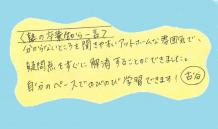 〈塾の卒業生から一言〉
分からないところを聞きやすいアットホームな雰囲気で、
疑問点をすぐに解消することができました。
自分のペースでのびのび学習できます！